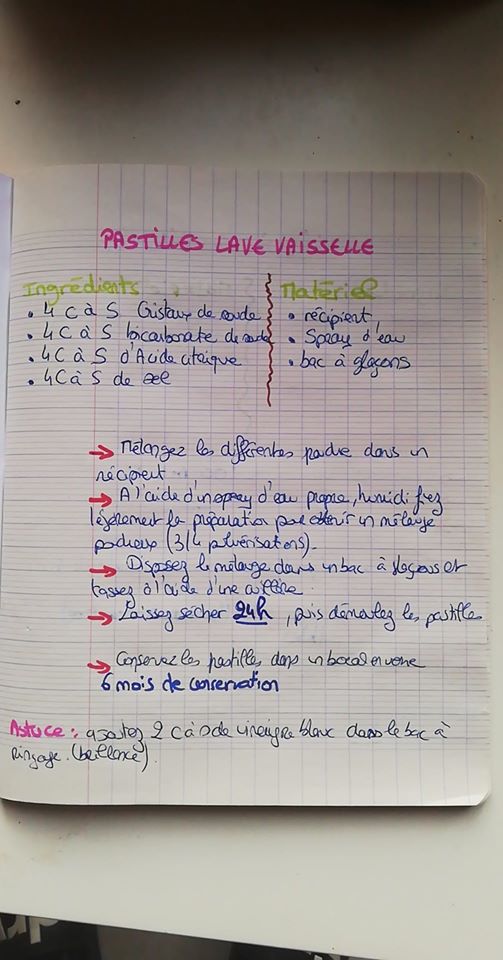 PASTILLES LAVE VAISSELLE
Ingrédients
• 4 C à S Cristaux de soude
• 4 C à S bicarbonate de soude
• 4 C à S d'Acide citrique
• 4 C à S de sel
Matériel
• récipient,
• Spray d'eau
• bac à glaçons
→ Mélangez les différentes poudre dans un
récipient
→ A l'aide d'un spray d'eau propre, humidifiez
légèrement la préparation pour obtenir un mélange
poudreux (3/4 pulvérisations).
→ Disposez le mélange dans un bac à glaçons et
tassez à l'aide d'une cuillère.
→ Laissez sécher 24h, puis démoulez les pastilles
→ Conservez les pastilles dans un bocal en verre
6 mois de conservation
Astuce : ajoutez 2 C à S de vinaigre blanc dans le bac à
rinçage. (brillance).